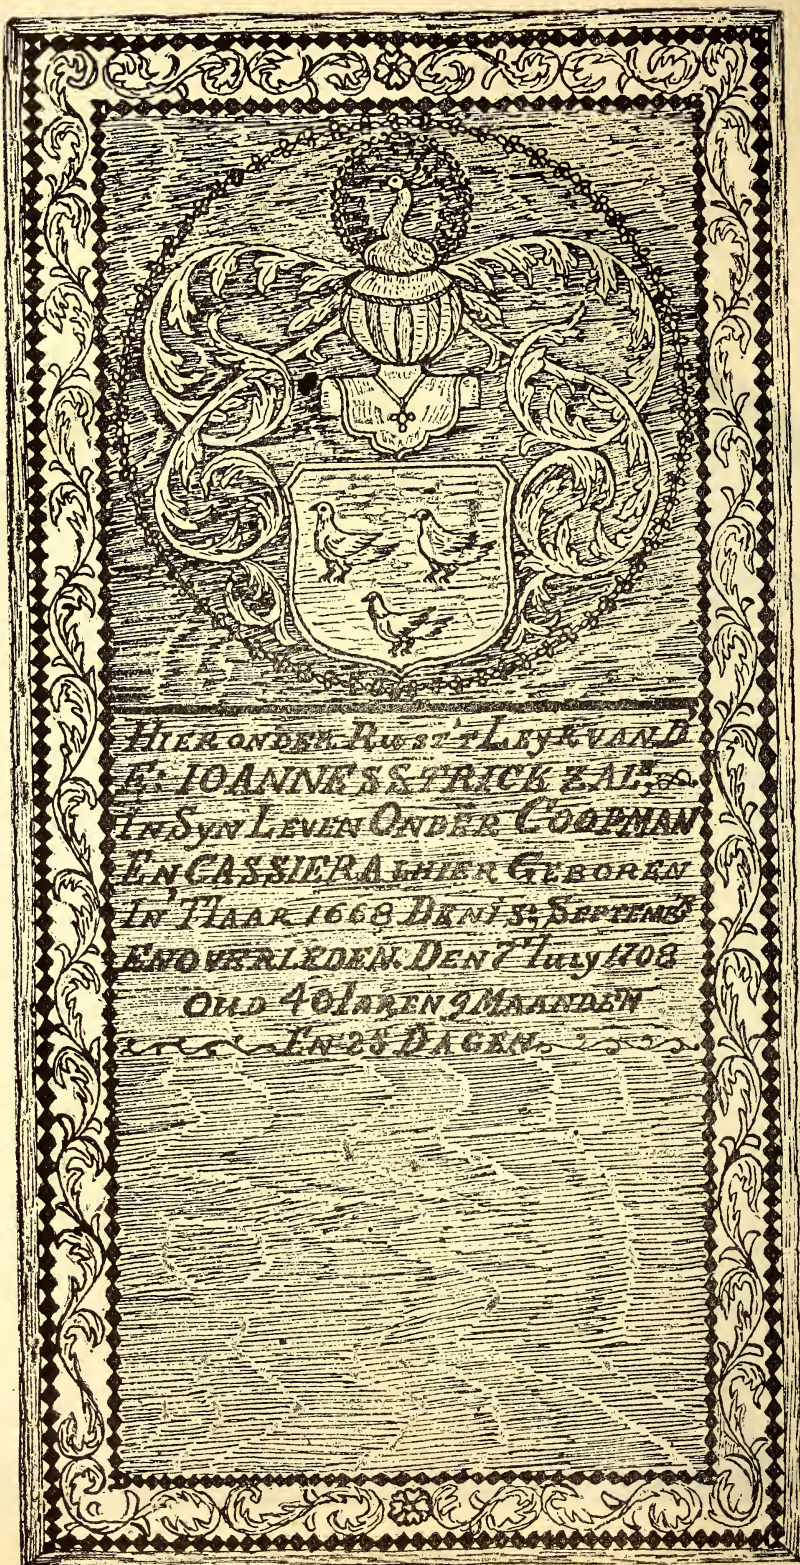 HIER ONDER RUST 'T LEYK VAN D'
E: IOANNES STRICK ZALR.
IN SYN LEVEN ONDER COOPMAN
EN CASSIER ALHIER GEBOREN
IN 'T IAAR 1668 DEN 13: SEPTEMBR
EN OVERLEDEN DEN 7 IULY 1708
OUD 40 IAREN 9 MAANDEN
EN 25 DAGEN